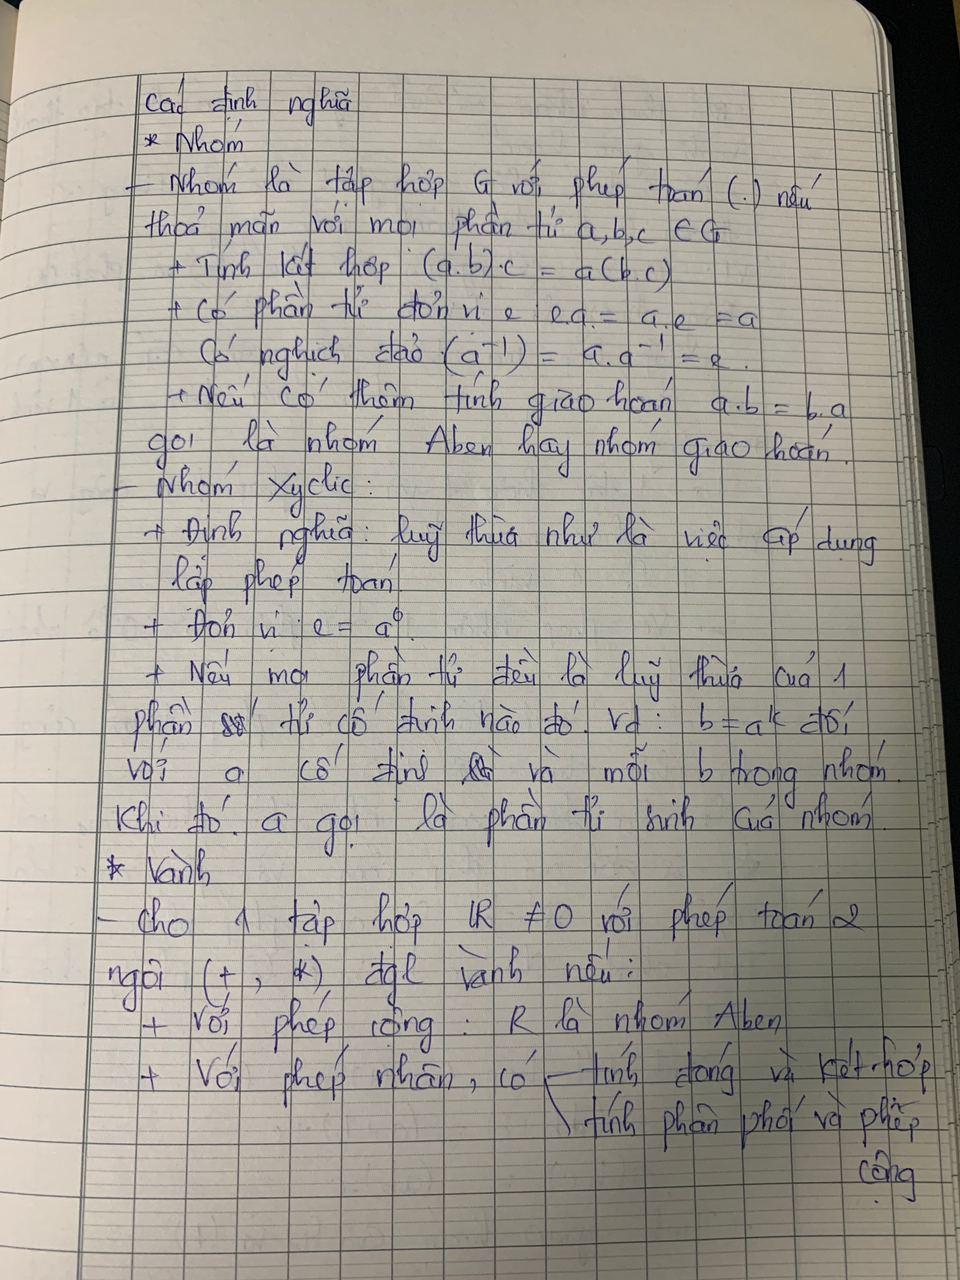 Các định nghĩa
* Nhóm
- Nhóm là tập hợp G với phép toán (.) nếu
thoả mãn với mọi phần tử a,b,c ∈ G
+ Tính kết hợp (a.b).c = a(b.c)
+ Có phần tử đơn vị e e.a. = a.e = a
Có nghịch đảo (a⁻¹) = a.a⁻¹ = e.
+ Nếu có thêm tính giao hoán a.b = b.a
gọi là nhóm Aben hay nhóm giao hoán.
- Nhóm Xyclic:
+ Định nghĩa: luỹ thừa như là việc áp dụng
lặp phép toán
+ Đơn vị: e = a⁰.
+ Nếu mọi phần tử đều là luỹ thừa của 1
phần tử cố định nào đó. vd: b = aᵏ đối
với a cố định và mỗi b trong nhóm.
Khi đó. a gọi là phần tử sinh của nhóm.
* Vành
- Cho 1 tập hợp R ≠ 0 với phép toán 2
ngôi (+, *) đgl vành nếu:
+ Với phép cộng: R là nhóm Aben
+ Với phép nhân, có - tính đóng và kết hợp
\ tính phân phối và phép
cộng